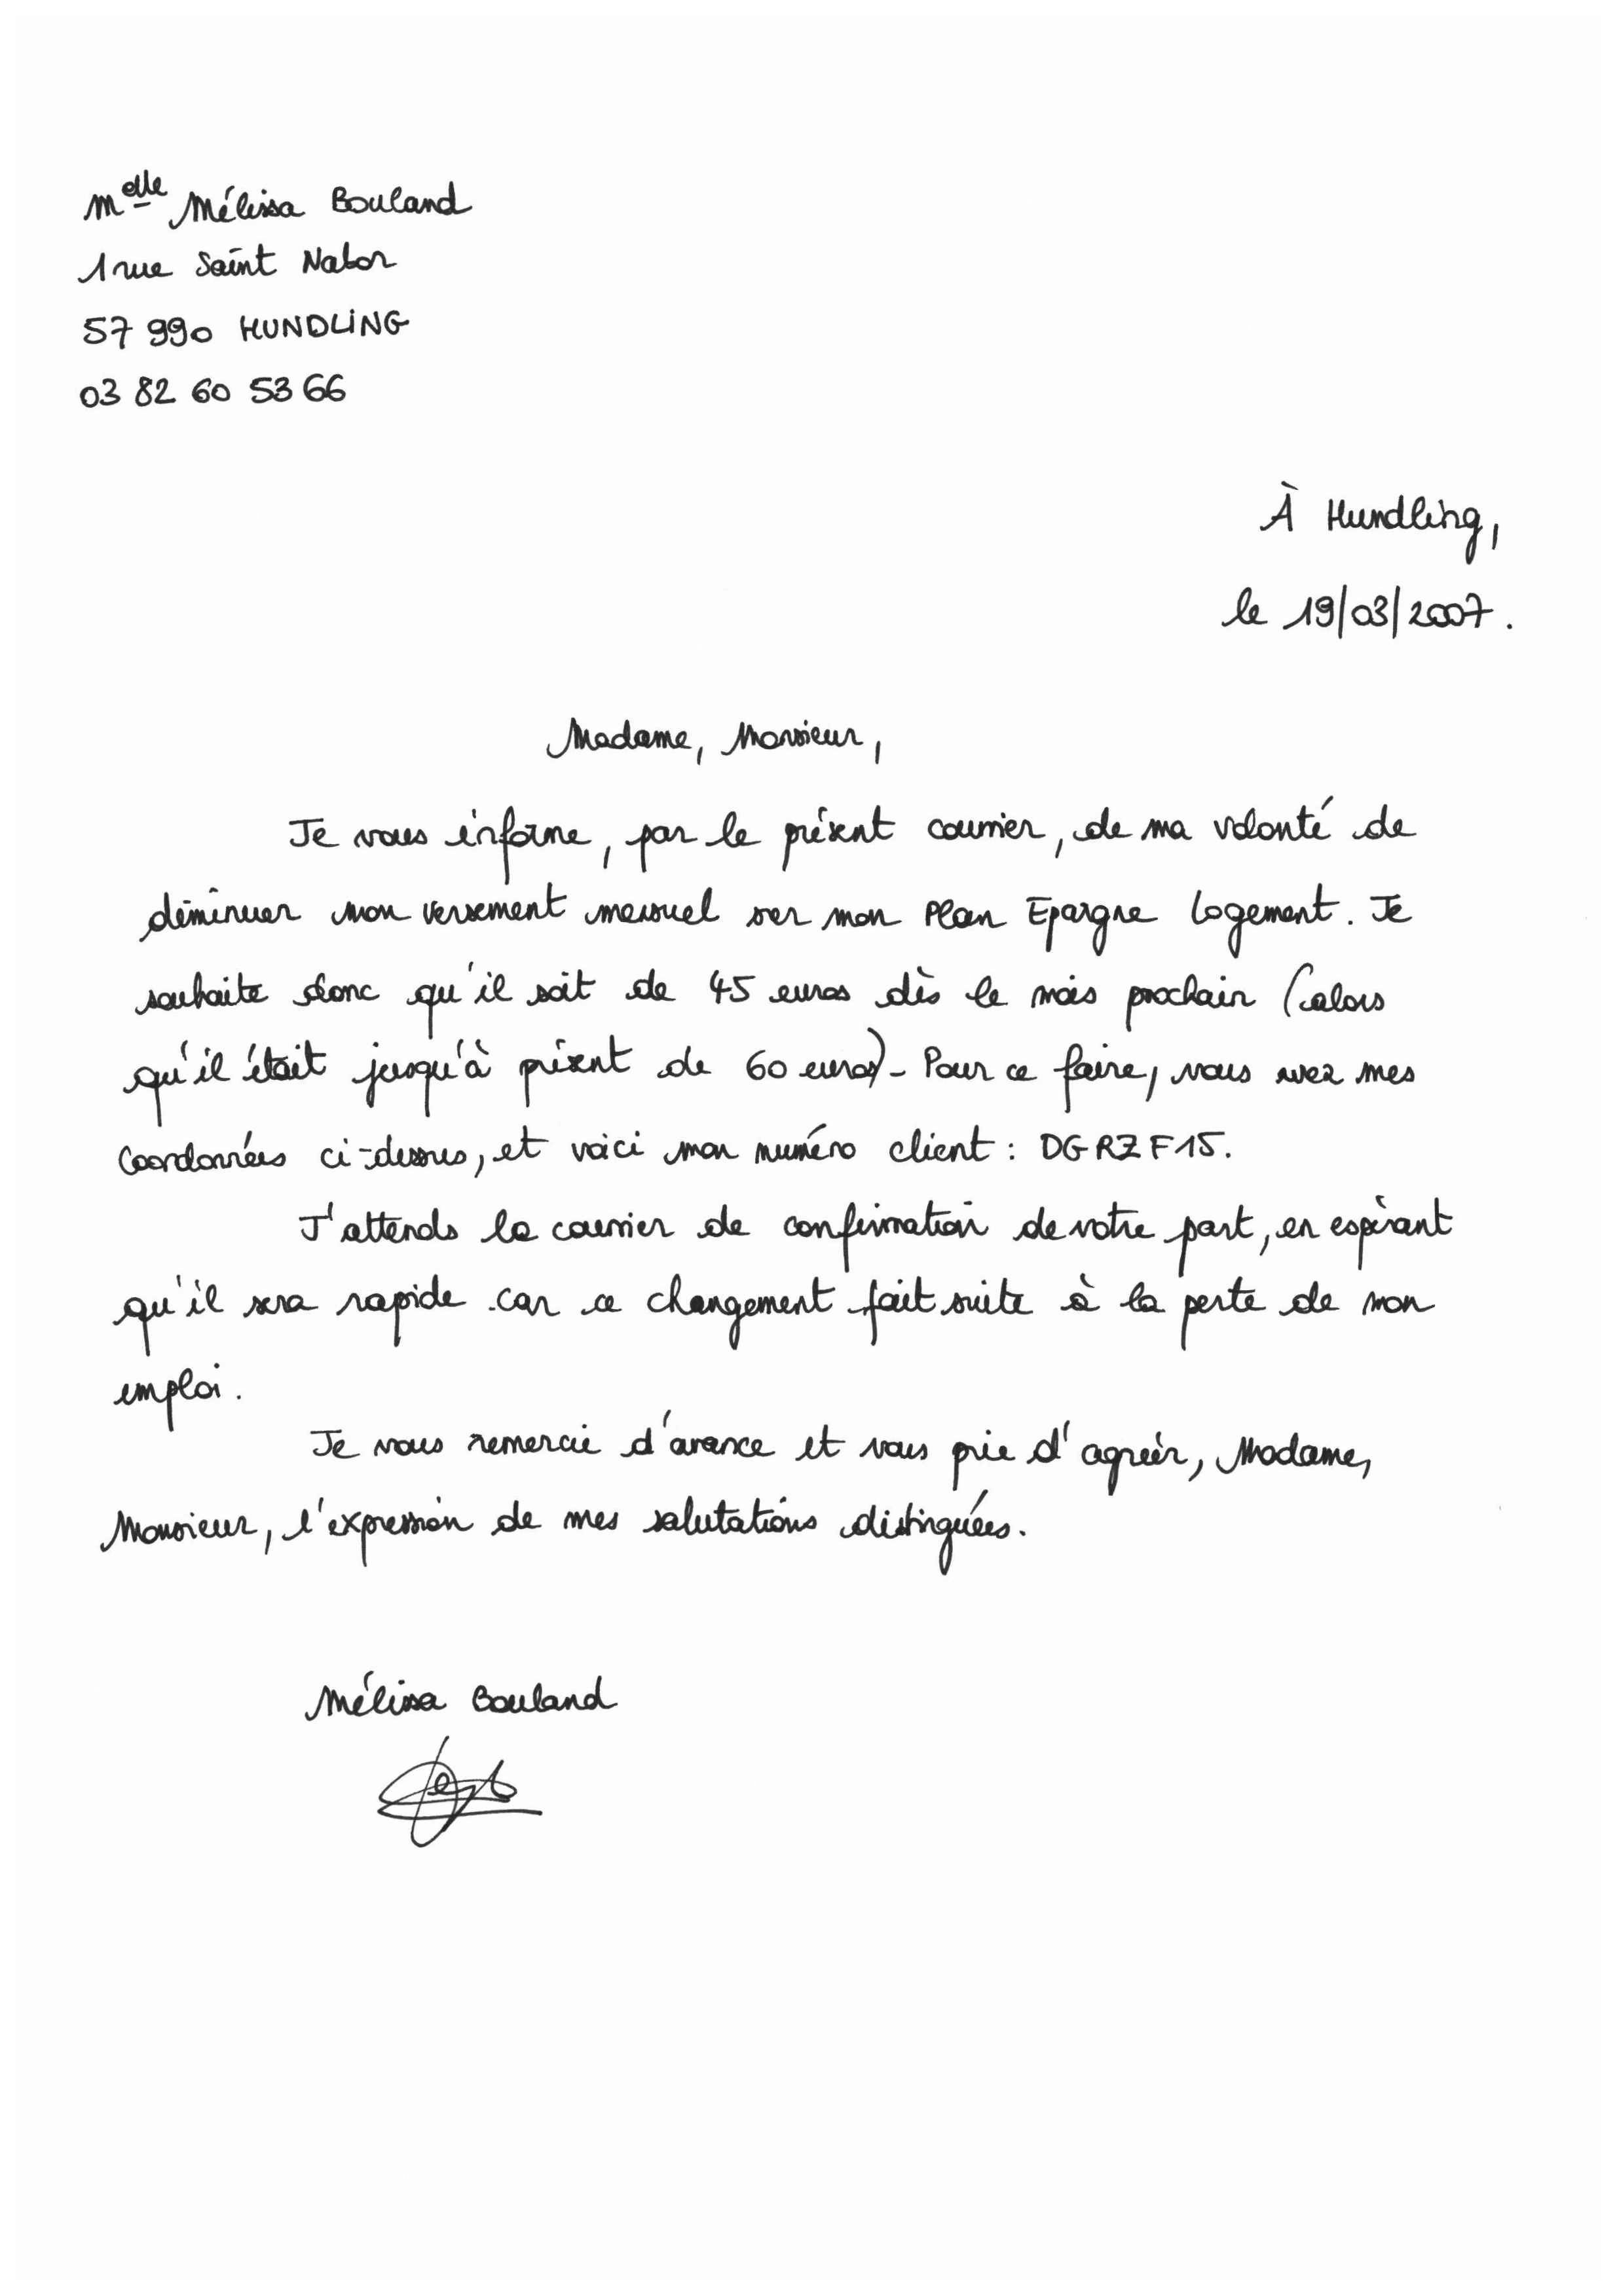 Melle Mélissa Bouland
1 rue Saint Nabor
57 990 HUNDLING
03 82 60 53 66
À Hundling,
le 19/03/2007.
Madame, Monsieur,
Je vous informe, par le présent courrier, de ma volonté de
diminuer mon versement mensuel sur mon Plan Epargne Logement. Je
souhaite donc qu'il soit de 45 euros dès le mois prochain (alors
qu'il était jusqu'à présent de 60 euros). Pour ce faire, vous avez mes
coordonnées ci-dessus, et voici mon numéro client : DGRZF15.
J'attends le courrier de confirmation de votre part, en espérant
qu'il sera rapide car ce changement fait suite à la perte de mon
emploi.
Je vous remercie d'avance et vous prie d'agréer, Madame,
Monsieur, l'expression de mes salutations distinguées.
Mélissa Bouland